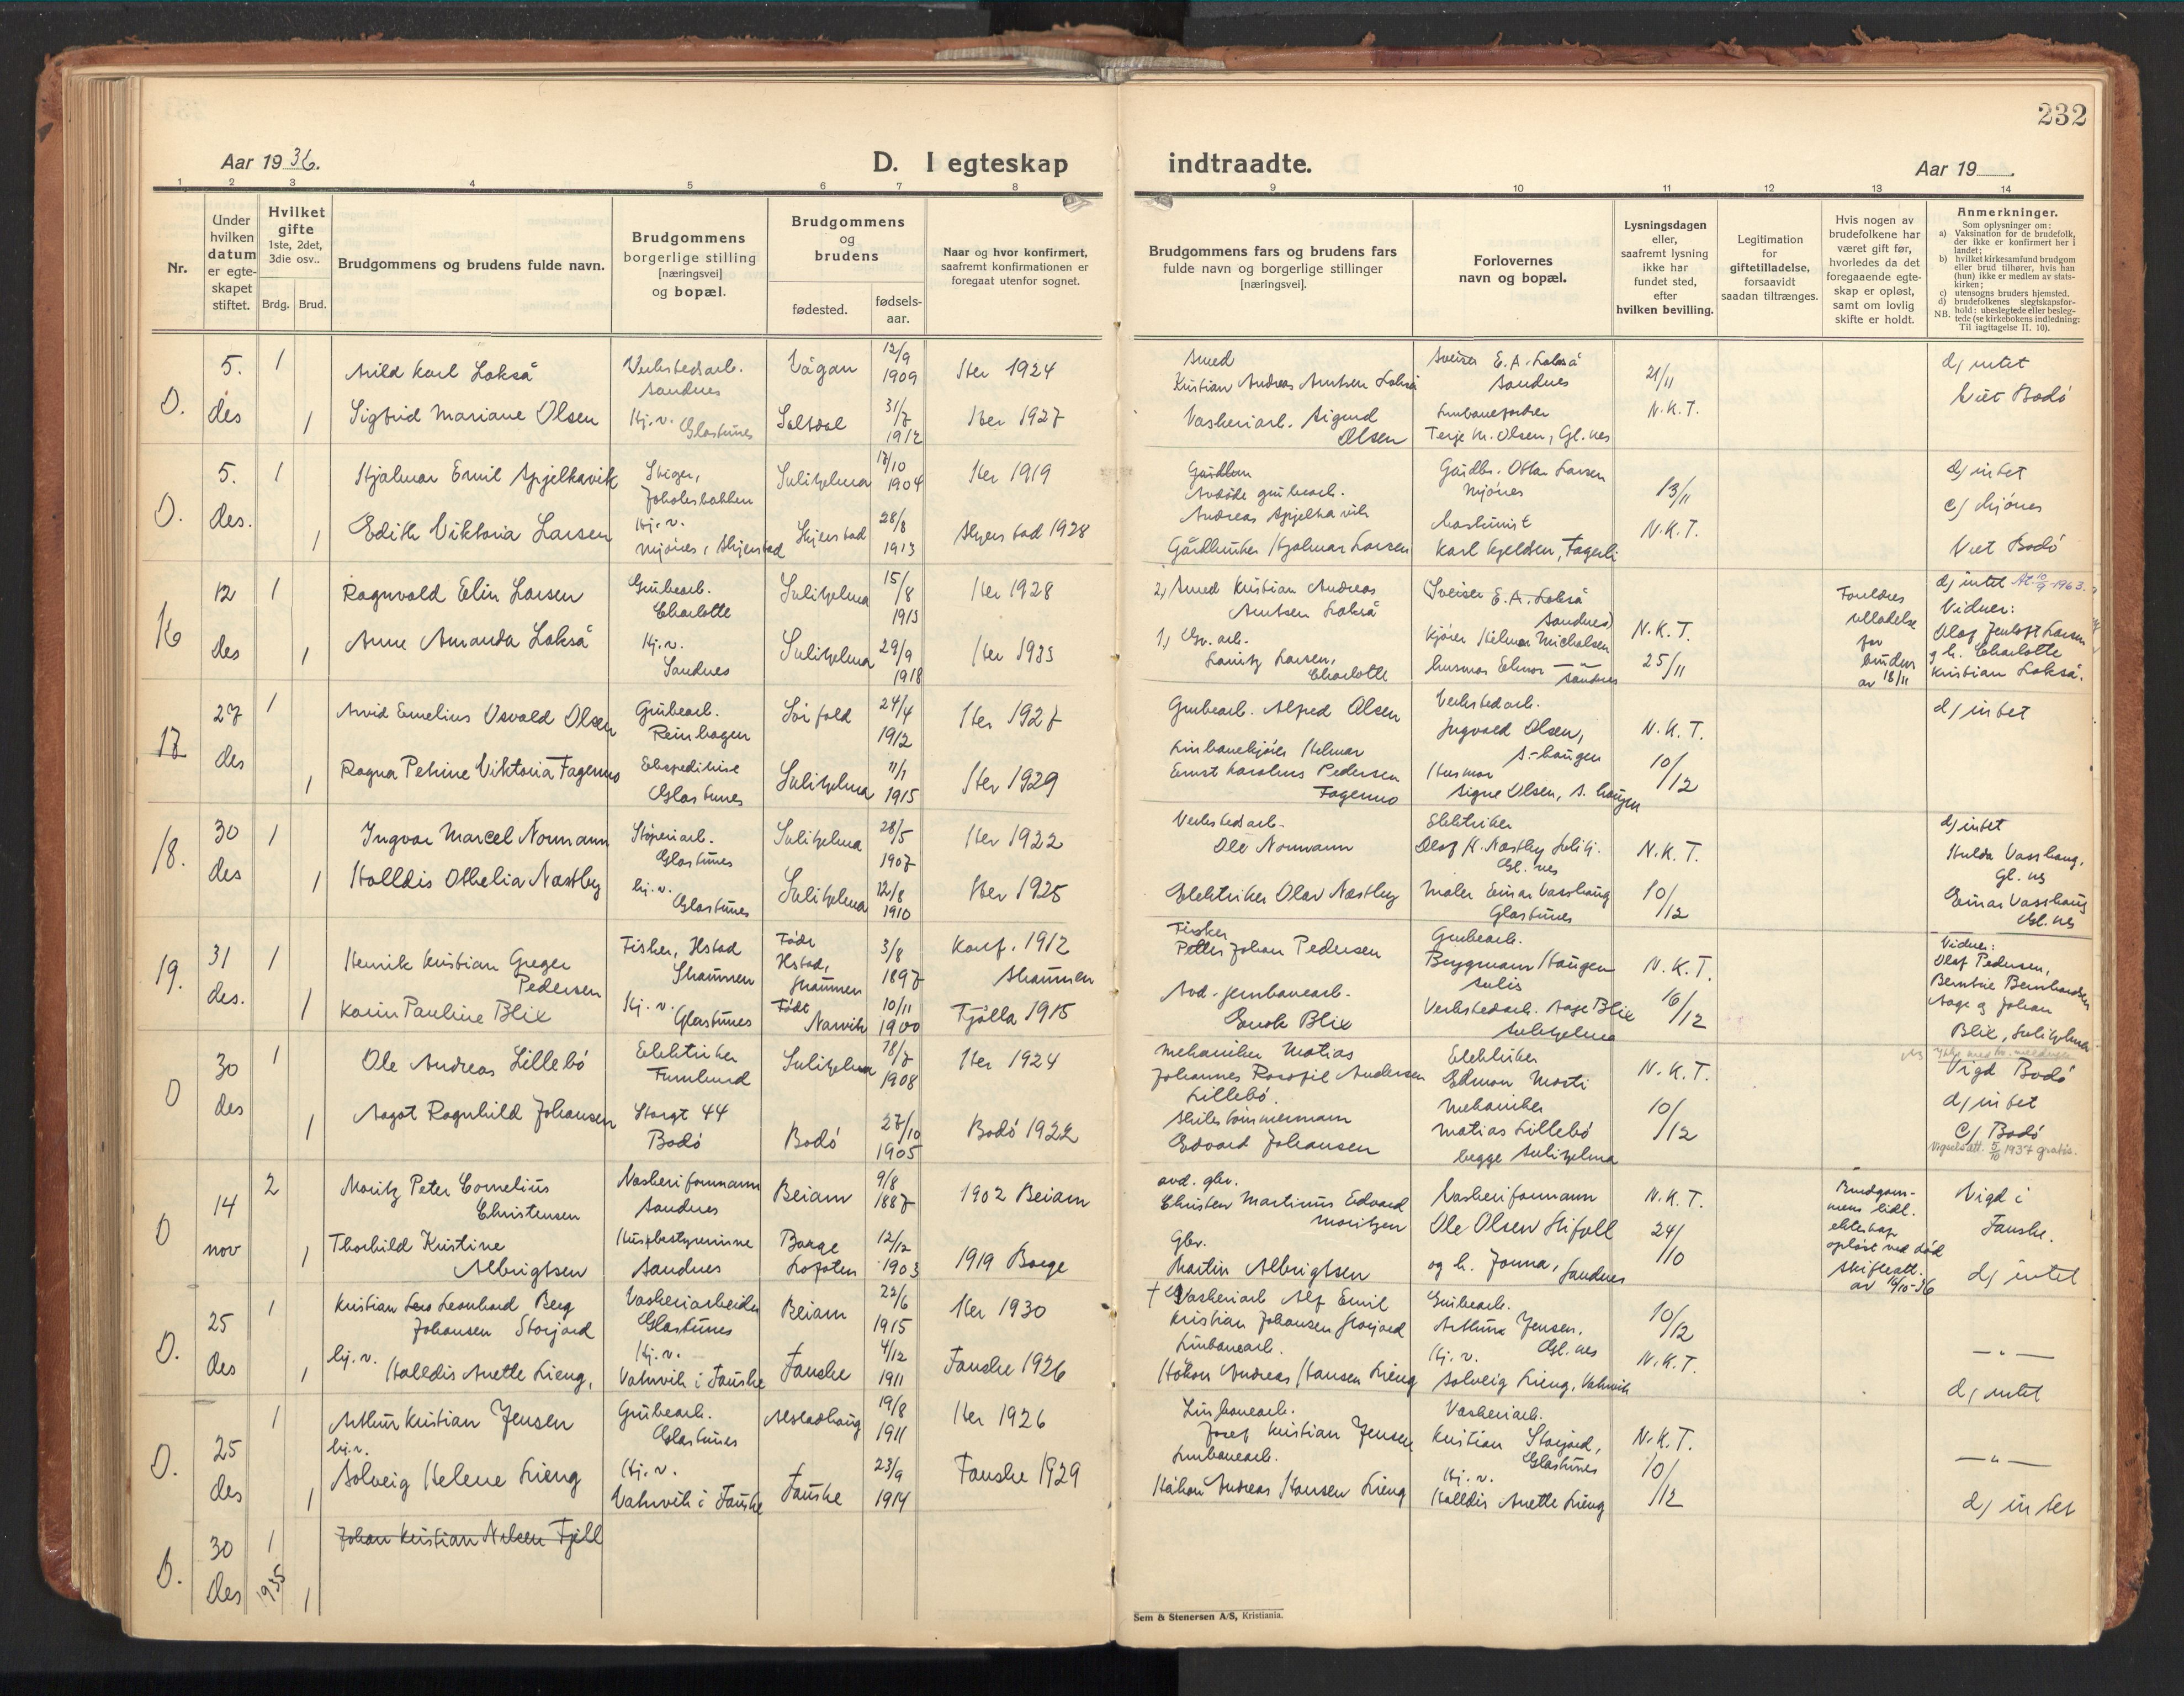 232
Aar 1936.
D. I egteskap
indtraadte.
Aar 19
1 2 3 4 5 6 7 8 9 10 11 12 13 14
Nr.
Under
hvilken
datum
er egte-
skapet
stiftet.
Hvilket
gifte
1ste, 2det,
3die osv..
Brdg. Brud.
Brudgommens og brudens fulde navn.
Brudgommens
borgerlige stilling
[næringsvei]
og bopæl.
Brudgommens
og
brudens
fødested.
fødsels-
aar.
Naar og hvor konfirmert,
saafremt konfirmationen er
foregaat utenfor sognet.
Brudgommens fars og brudens fars
fulde navn og borgerlige stillinger
[næringsvei].
Forlovernes
navn og bopæl.
Lysningsdagen
eller,
saafremt lysning
ikke har
fundet sted,
efter
hvilken bevilling.
Legitimation
for
giftetilladelse,
forsaavidt
saadan tiltrænges.
Hvis nogen av
brudefolkene har
været gift før,
hvorledes da det
foregaaende egte-
skap er opløst,
samt om lovlig
skifte er holdt.
Anmerkninger.
Som oplysninger om:
a) Vaksination for de brudefolk,
der ikke er konfirmert her i
landet;
b) hvilket kirkesamfund brudgom
eller brud tilhører, hvis han
(hun) ikke er medlem av stats-
kirken;
c) utensogns bruders hjemsted.
d) brudefolkenes slegtskapsfor-
hold: ubeslegtede eller besleg-
NB. tede (se kirkebokens indledning:
Til iagttagelse II. 10).
O.
5.
des
1
Arild Karl Lokså
Verkstedarb.
Sandnes
Vågan
12/9
1909
Her 1924
Smed
Kristian Andreas Arntsen Lokså
Sveiser E. A. Lokså
Sandnes
21/11
N.K.T.
d) intet
Viet Bodö
1
Sigfrid Mariane Olsen
Hj.v. Glastunes
Saltdal
31/7
1912
Her 1927
Vaskeriarb. Sigurd
Olsen
Linbaneforder
Terje M. Olsen, Gl.nes
O.
5.
des.
1
Hjalmar Emil Spjelkavik
Stiger,
Jakobsbakken
Sulitjelma
17/10
1904
Her 1919
Avdöde grubearb.
Andreas Spjelkavik
Gårdbr. Ottar Larsen
Mjönes
13/11
N.K.T.
d) intet
c) Mjönes
Viet Bodö
1
Edith Viktoria Larsen
Hj.v.
Mjönes i Skjerstad
Skjerstad
28/8
1913
Skjerstad 1928
Gårdbruker Hjalmar Larsen
Maskinist
Karl Kjelden, Fagerli
16
12
des
1
Ragnvald Elin Larsen
Grubearb.
Charlotte
Sulitjelma
15/8
1913
Her 1928
2) Smed Kristian Andreas
Arntsen Lokså
(Sveiser E. A. Lokså
Sandnes)
N.K.T.
25/11
Foreldres
tilladelse
for
bruden
av 18/11
d) intet
Vidner:
Olaf Jentoft Larsen
g.h. Charlotte
Kristian Lokså.
1
Anne Amanda Lokså
Hj.v.
Sandnes
Sulitjelma
29/9
1918
Her 1933
1) Gr. arb.
Lauritz Larsen,
Charlotte
Kjörer Hilmar Michalsen
husmor Elinor — " —
Sandnes
17
27
des
1
Arvid Emelius Osvald Olsen
Grubearb.
Reinhagen
Sörfold
24/4
1912
Her 1927
Grubearb. Alfred Olsen
Verkstedarb.
Ingvald Olsen,
S.-haugen
N.K.T.
10/12
d) intet
1
Ragna Petrine Viktoria Fagermo
Ekspeditrise
Glastunes
Sulitjelma
11/1
1915
Her 1929
Linbanekjörer Hilmar
Ernst Karolius Pedersen
Fagermo
Husmor
Signe Olsen, S. haugen
18.
30
des
1
Ingvar Marcel Normann
Støperiarb.
Glastunes
Sulitjelma
28/5
1907
Her 1922
Verkstedsarb.
Ole Normann
Elektriker
Olaf K. Næstby Sulitj.
Gl.nes
N.K.T.
10/12
d) intet
Hulda Vasshaug,
Gl.nes
Einar Vasshaug
Gl.nes
1
Halldis Othelia Næstby
hj.v.
Glastunes
Sulitjelma
12/8
1910
Her 1925
Elektriker Olav Næstby
Maler Einar Vasshaug
Glastunes
19.
31
des.
1
Henrik Kristian Greger
Pedersen
Fisker, Ystad
Skaumen
Födt
3/8
1897
Konf. 1912
Fisker
Petter Johan Pedersen
Grubearb.
Brygmann Haugen
Sulis
N.K.T.
16/12
Vidner:
Olaf Pedersen,
Berntine Bernhardsen
Aage og Johan
Blix, Sulitjelma
1
Karin Pauline Blix
Hj.v.
Glastunes
Födt
Narvik
10/11
1900
Tjötta 1915
Avd. jernbanearb.
Enok Blix
Verkstedarb. Aage Blix
Sulitjelma
O
30
des
1
Ole Andreas Lillebö
Elektriker
Furulund
Sulitjelma
18/7
1908
Her 1924
Mekaniker Matias
Johannes Rosofil Andersen
Lillebö.
Elektriker
Edmon Morti
N.K.T.
10/12
Vigd Bodö
d) intet
c) Bodö
Vigselsatt. 5/10 1937 gratis.
1
Aagot Ragnhild Johansen
Storgt 44
Bodö
Bodö
27/10
1905
Bodö 1922
Skibstömmermann
Edvard Johansen
Mekaniker
Matias Lillebö
begge Sulitjelma
O
14
nov
2
Moritz Peter Cornelius
Christensen
Vaskeriformann
Sandnes
Beiarn
9/8
1887
1902 Beiarn
avd. gbr.
Christen Martinus Edvard
Moritzen
Vaskeriformann
Ole Olsen Stifjell
og h. Jonna, Sandnes
N.K.T.
24/10
Brudgom-
mens tidl.
ekteskap
oplöst ved död
skifteatt.
av 16/10-36
Vigd i
Fauske.
d) intet
1
Thorhild Kristine
Albrigtsen
Husbestyrerinne
Sandnes
Borge
Lofoten
12/12
1903
1919 Borge
Gbr.
Martin Albrigtsen
O.
25
des
1
Kristian Leonhard Berg
Johansen Storjord
Vaskeriarbeider
Glastunes
Beiarn
22/6
1915
Her 1930
† Vaskeriarb Alf Emil
Kristian Johansen Storjord
Grubearb.
Arthur Jensen,
Gl.nes
10/12
N.K.T.
— " —
d) intet
1
hj.v. Halldis Anette Lieng,
Hj.v.
Valnvik i Fauske
Fauske
4/12
1911
Fauske 1926
Linbanearb.
Håkon Andreas Hansen Lieng
Hj.v.
Solveig Lieng, Valnvik
O.
25
des
1
Arthur Kristian Jensen
Grubearb.
Glastunes
Alstadhaug
19/8
1911
Her 1926
Linbanearb.
Josef Kristian Jensen
Vaskeriarb.
Kristian Storjord,
Glastunes
N.K.T.
10/12
— " —
d) intet
1
hj.v.
Solveig Helene Lieng
Hj.v.
Valnvik i Fauske
Fauske
23/9
1914
Fauske 1929
Linbanearb.
Håkon Andreas Hansen Lieng
Hj.v.
Halldis Anette Lieng
O.
30
des
1935
1
1
Johan Kristian Nilsen Fjell
Sem & Stenersen A/S, Kristiania.